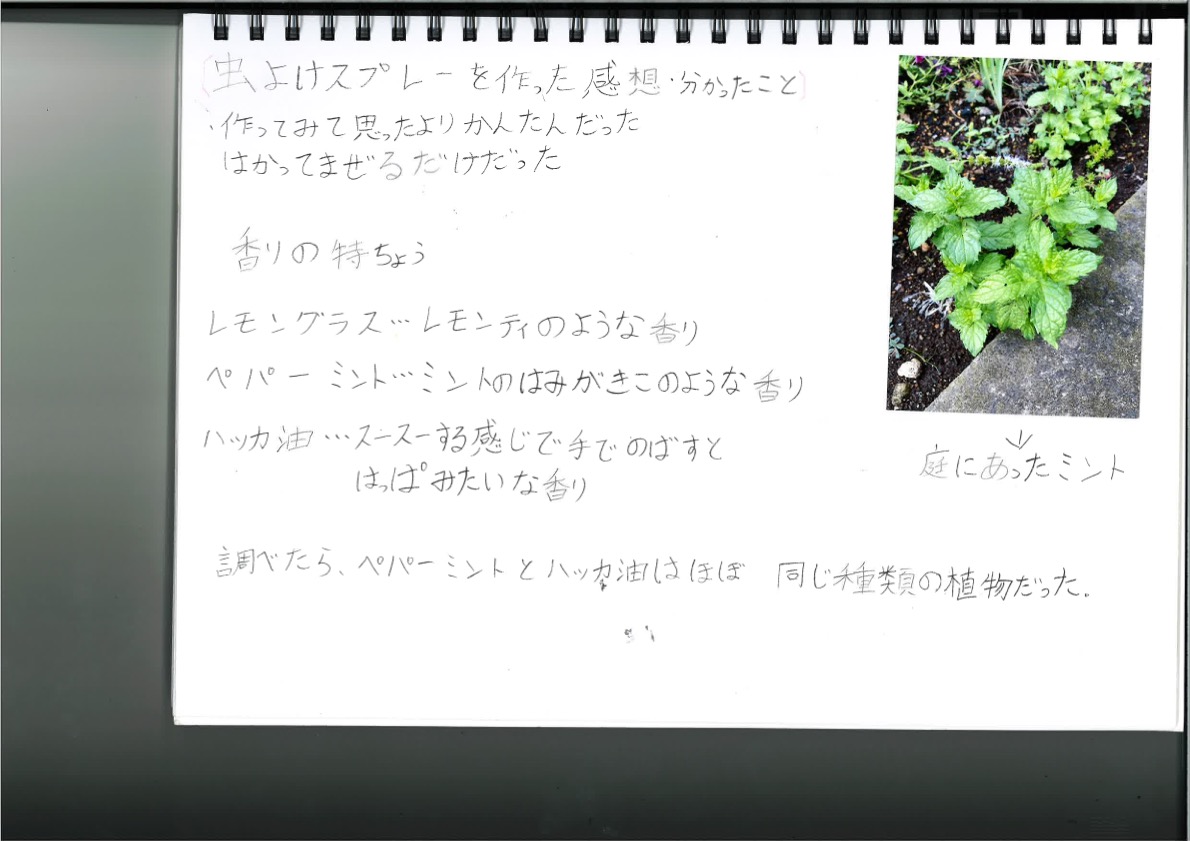 [虫よけスプレーを作った感想・分かったこと]
・作ってみて思ったよりかんたんだった
はかってまぜるだけだった
香りの特ちょう
レモングラス…レモンティのような香り
ペパーミント…ミントのはみがきこのような香り
ハッカ油…スースーする感じで手でのばすと
はっぱみたいな香り
↓
庭にあったミント
調べたら、ペパーミントとハッカ油はほぼ 同じ種類の植物だった。